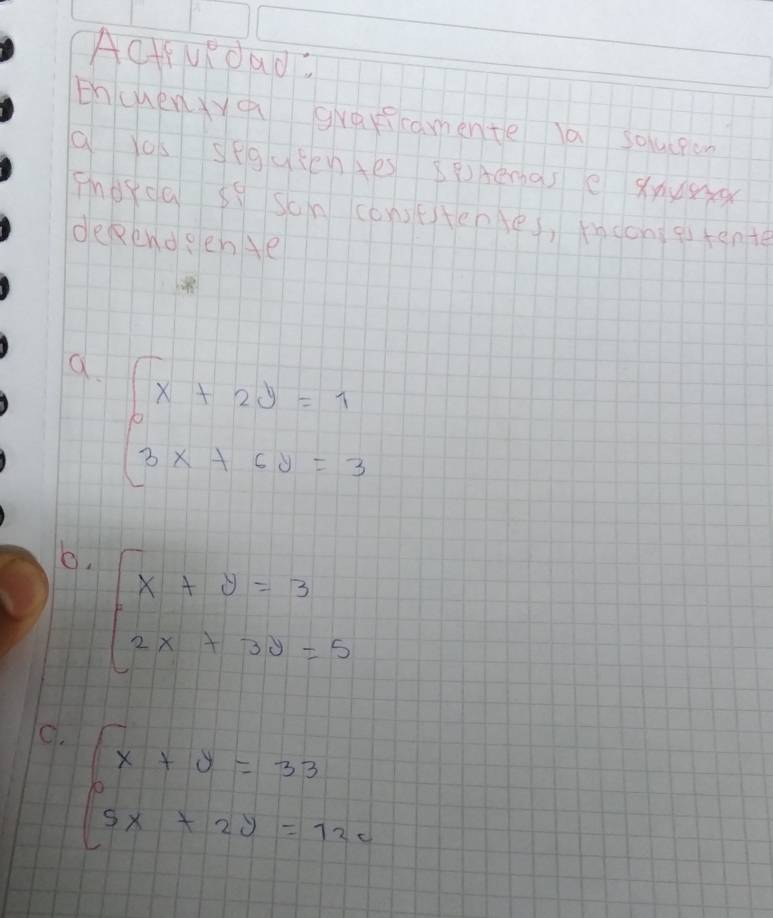 Actividad:
Encuentra graficamente la solucion
a los siguientes sistemas e
indica si son consistentes, inconsistente
dependiente
a. x + 2y = 1
3x + 6y = 3
b. x + y = 3
2x + 3y = 5
c. x + y = 33
5x + 2y = 120